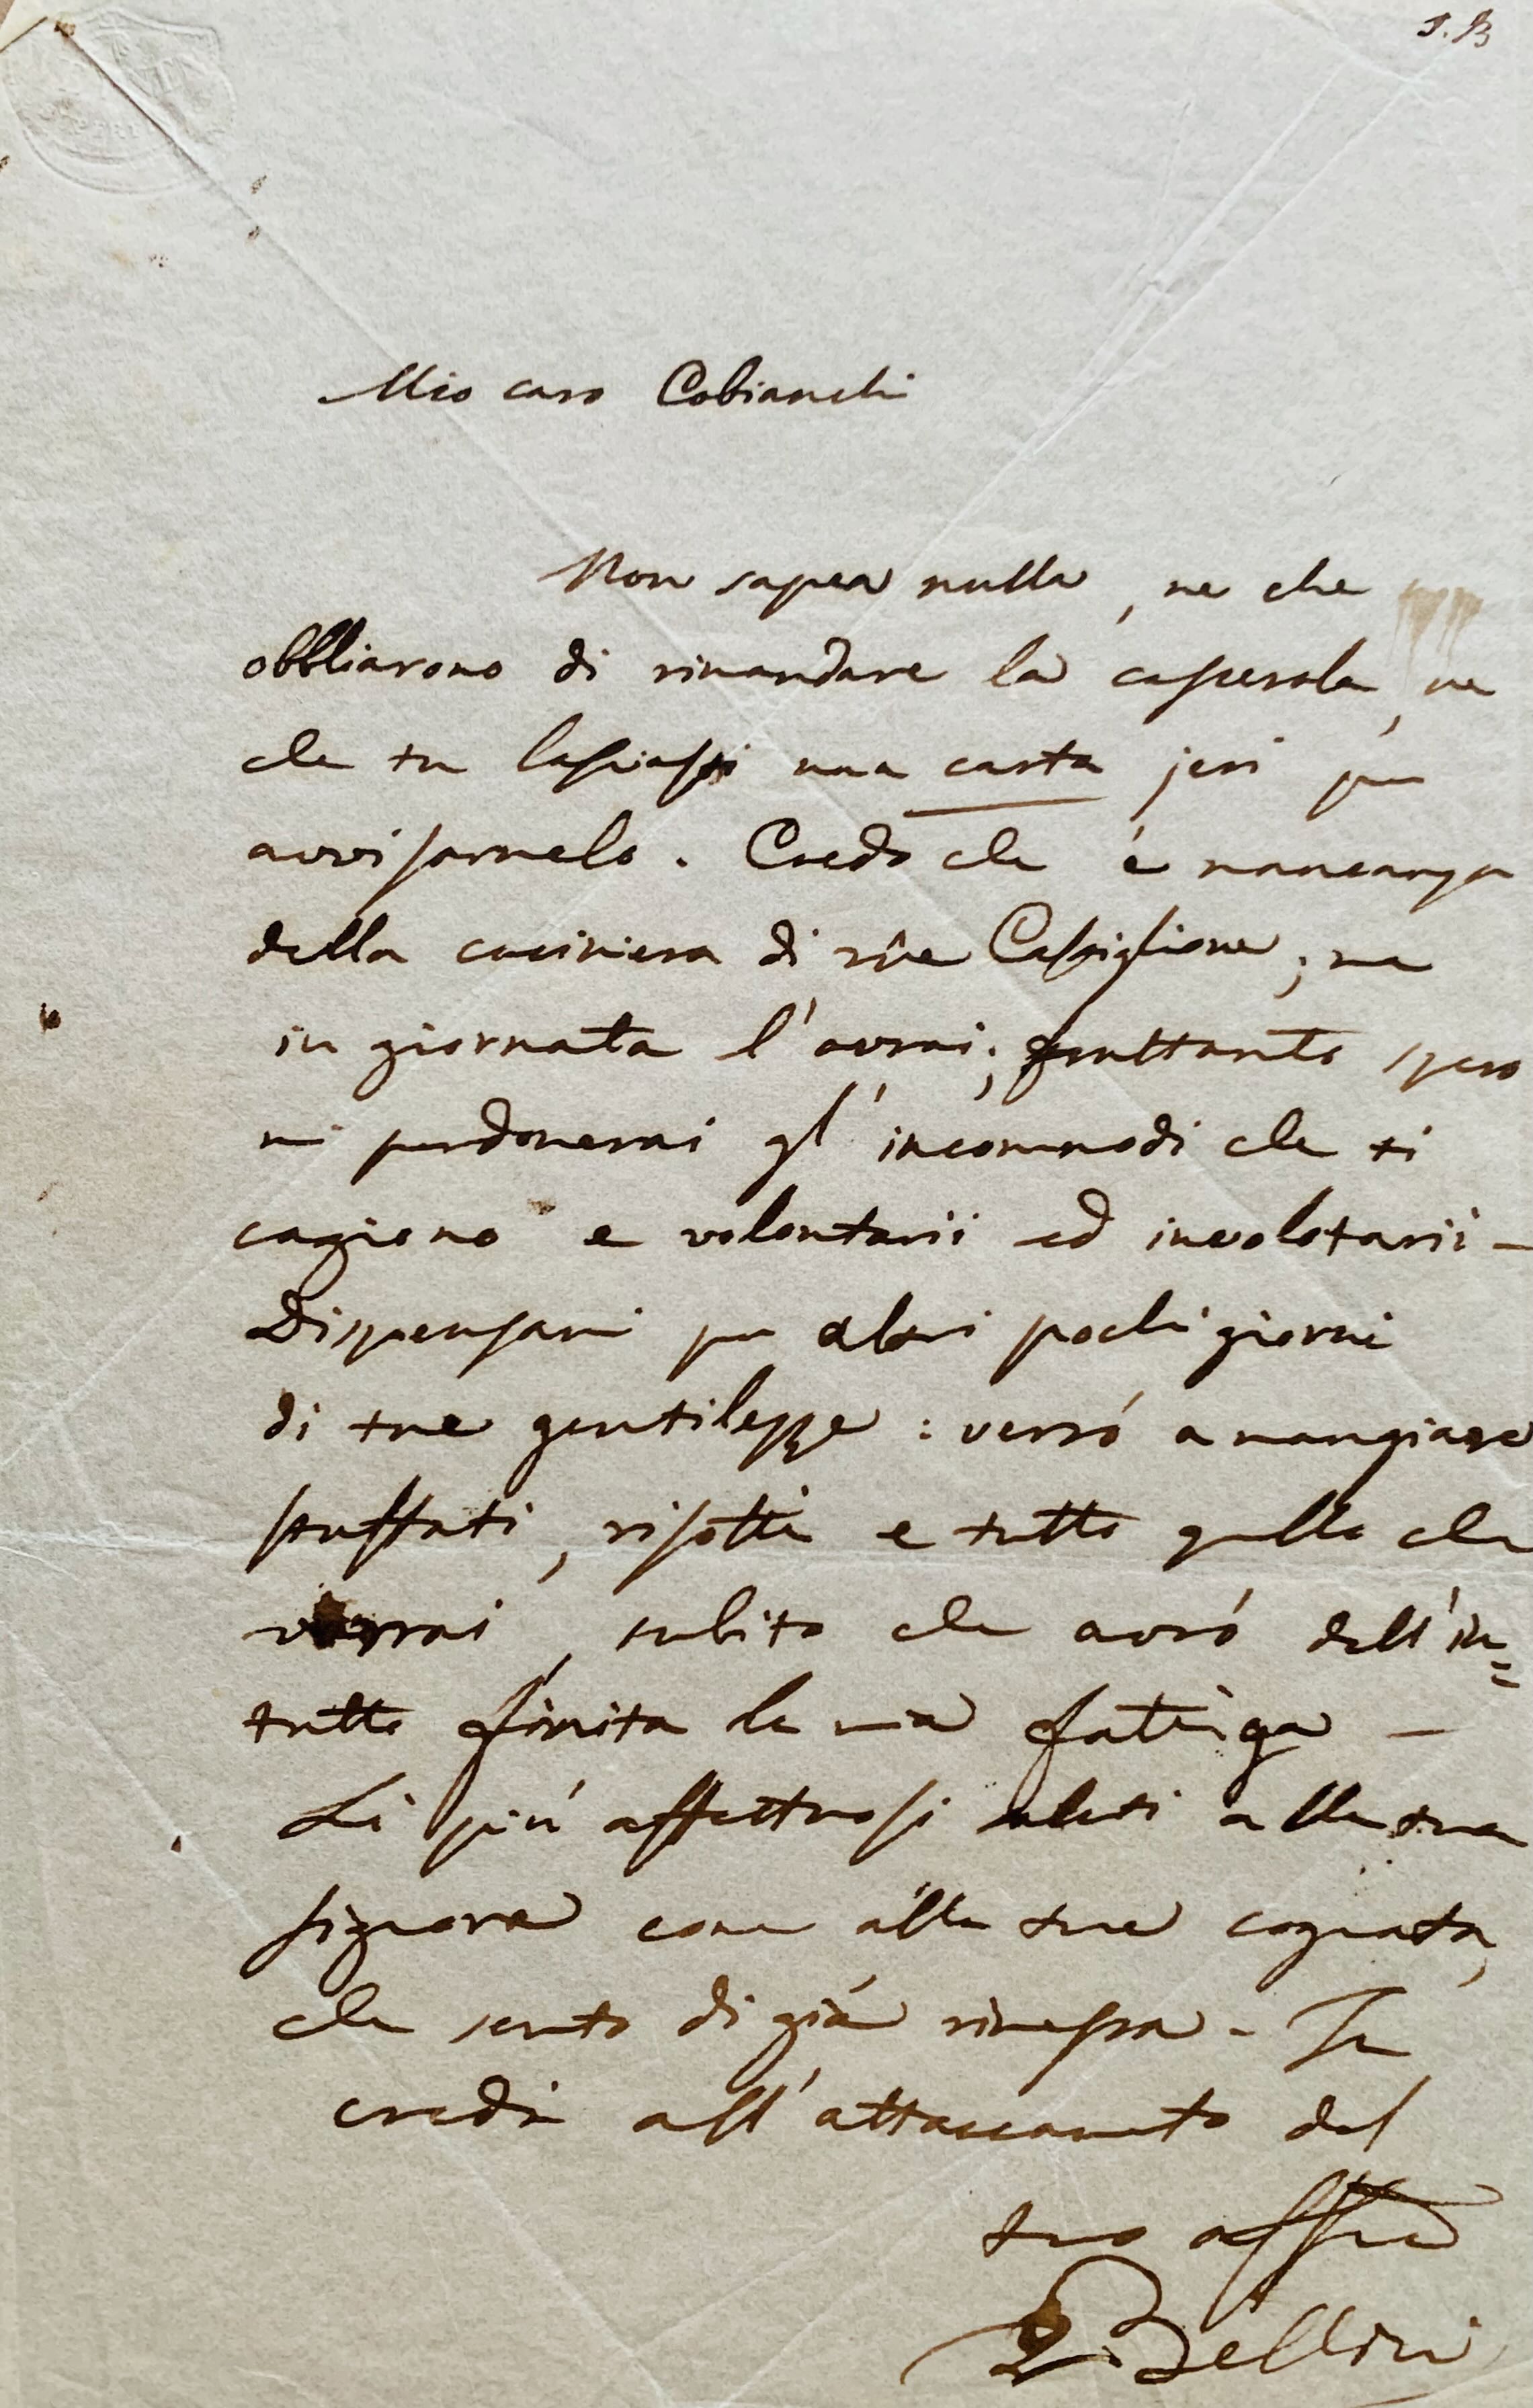 S. B
Mio caro Cobianchi
Non sapea nulla, ne che
obbliarono di rimandare la casserola, ne
che tu lasciassi una carta jeri per
avvisarmelo. Credo che é mancanza
della cuciniera di rüe Castiglione; ma
in giornata l'avrai; frattanto spero
mi perdonerai gl'incommodi che ti
cagiono e volontarii ed involotarii —
Dispensami per altri pochi giorni
di tue gentilezze: verró a mangiare
stuffati, risotti e tutto quello che
vorrai, subito che avró dell'in=
tutto finita la mia fatiga —
Li piú affettuosi saluti alla tua
signora come alla tua cognata,
che sento di giá rimessa - Tu
credi all'attaccamento del
tuo affmo
Bellini